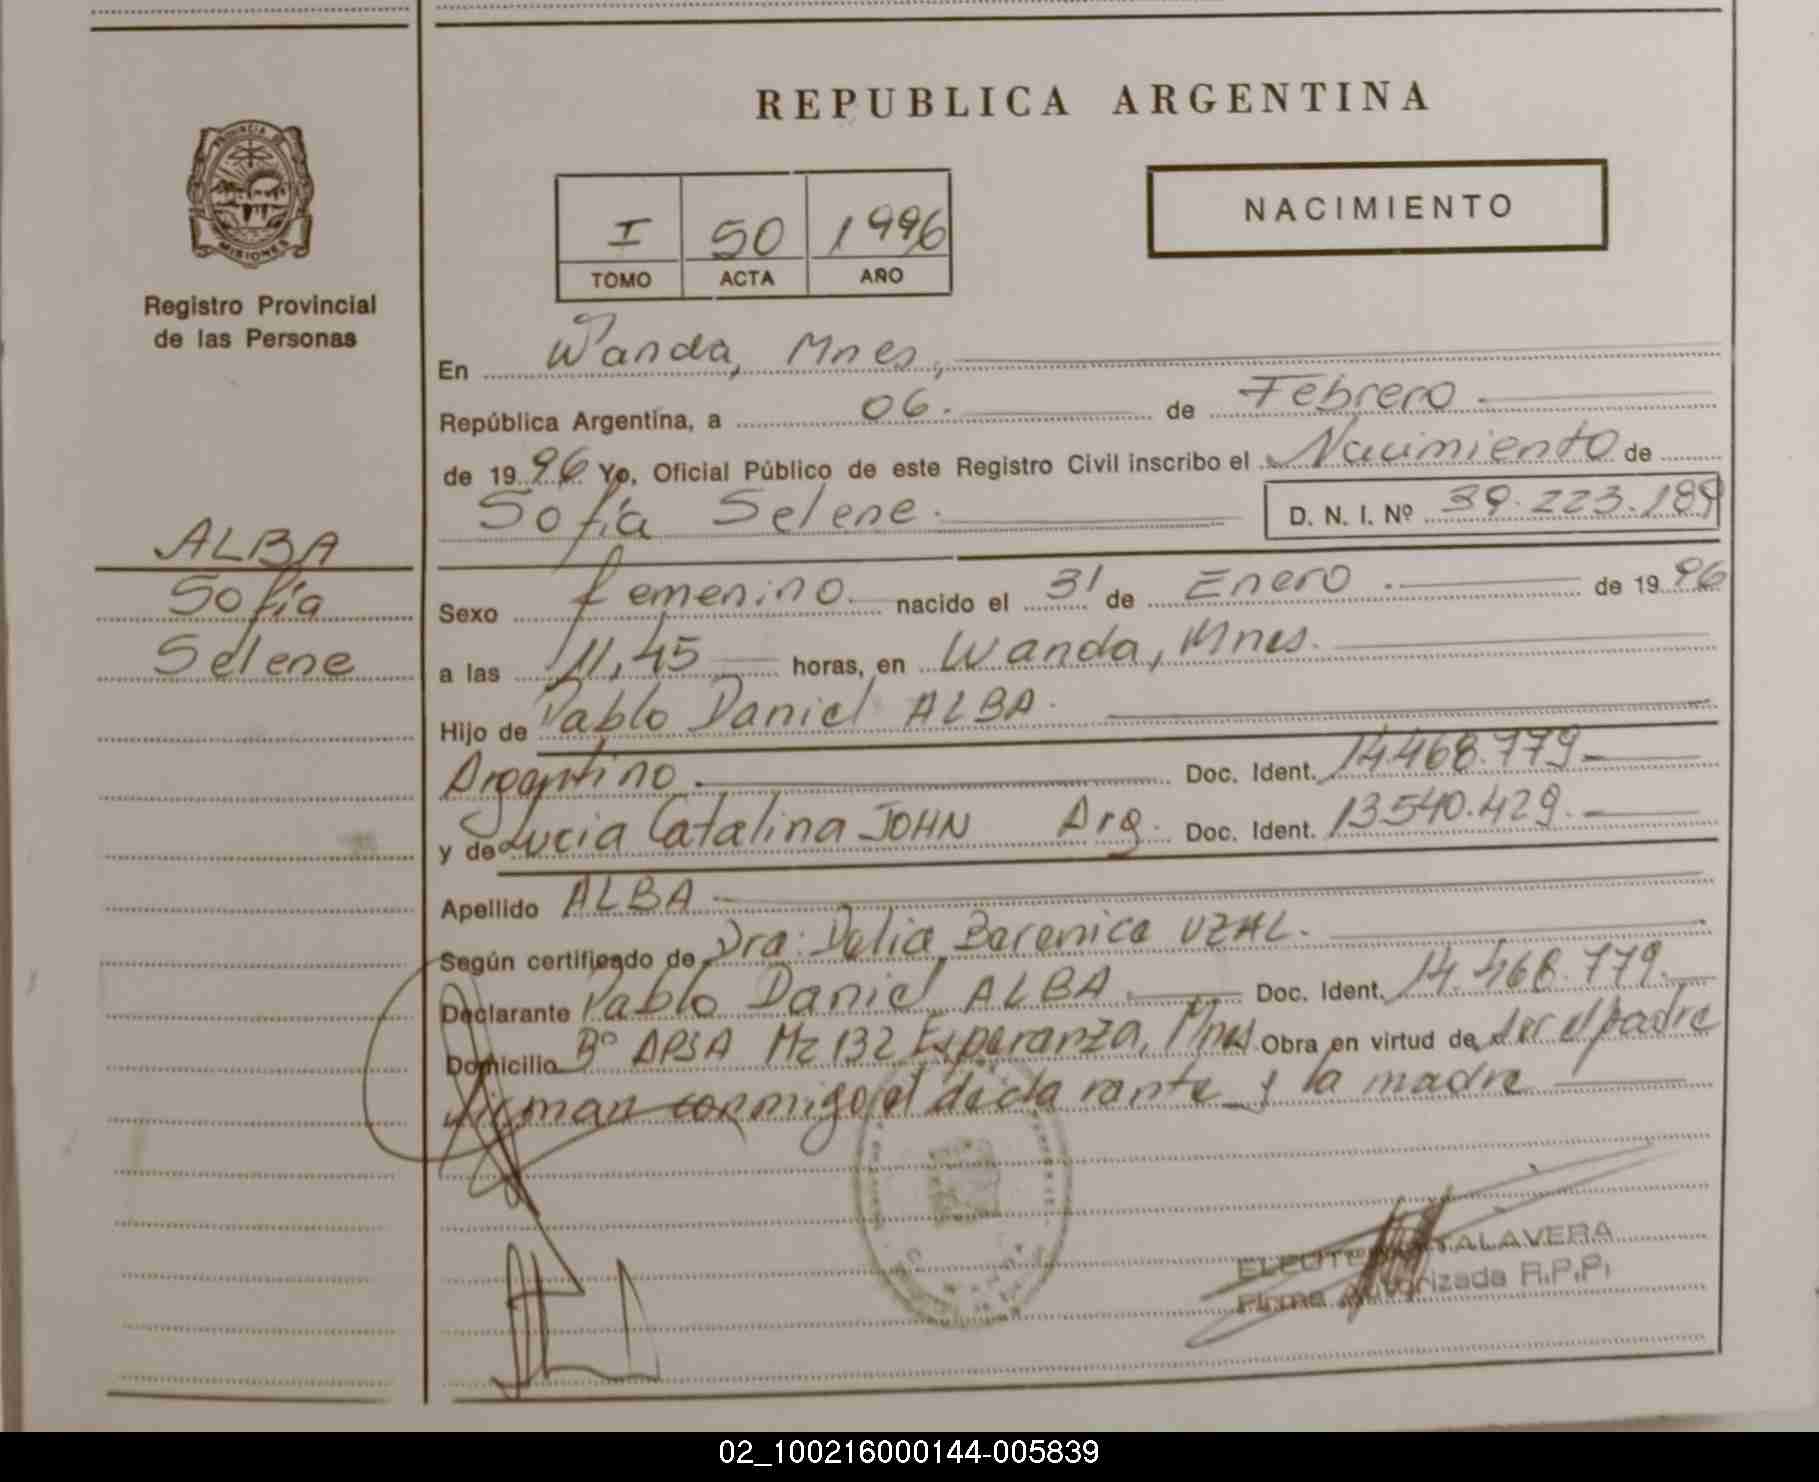 REPUBLICA ARGENTINA
PROVINCIA DE
MISIONES
Registro Provincial
de las Personas
NACIMIENTO
I 50 1996
TOMO ACTA AÑO
En Wanda, Mnes,
República Argentina, a 06. de Febrero
de 1996 Yo, Oficial Público de este Registro Civil inscribo el Nacimiento de
Sofía Selene. D. N. I. Nº 39.223.189
ALBA
Sofía
Selene
Sexo femenino nacido el 31 de Enero de 1996
a las 11,45 horas, en Wanda, Mnes.
Hijo de Pablo Daniel ALBA.
Argentino Doc. Ident. 14.468.779
y de Lucia Catalina JOHN Arg. Doc. Ident. 13540.429.
Apellido ALBA
Según certificado de Dra. Delia Berenice UZAL.
Declarante Pablo Daniel ALBA Doc. Ident. 14.468.779.
Domicilio Bº APSA Mz 132 Esperanza, Mnes Obra en virtud de ser el padre
firman conmigo el declarante y la madre
TALAVERA
Firma Autorizada R.P.P.
02_100216000144-005839